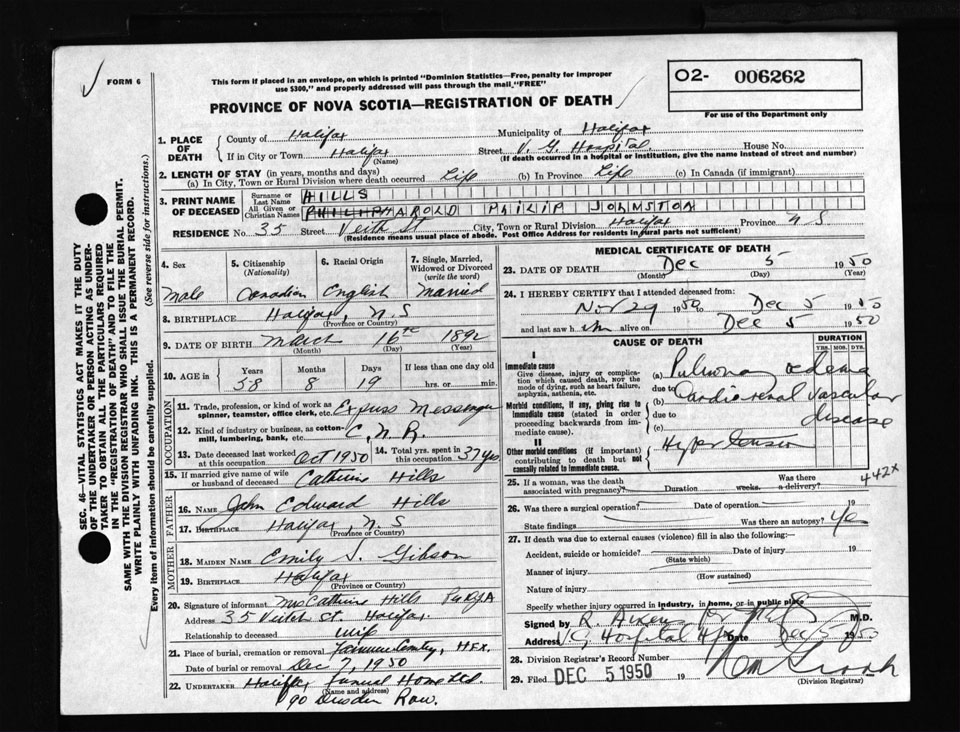 FORM 6
This form if placed in an envelope, on which is printed "Dominion Statistics—Free, penalty for improper
use $300," and properly addressed will pass through the mail, "FREE"
O2- 006262
For use of the Department only
PROVINCE OF NOVA SCOTIA—REGISTRATION OF DEATH
SEC. 46—VITAL STATISTICS ACT MAKES IT THE DUTY
OF THE UNDERTAKER OR PERSON ACTING AS UNDER-
TAKER TO OBTAIN ALL THE PARTICULARS REQUIRED
IN THE "REGISTRATION OF DEATH" AND TO FILE THE
SAME WITH THE DIVISION REGISTRAR WHO SHALL ISSUE THE BURIAL PERMIT.
WRITE PLAINLY WITH UNFADING INK. THIS IS A PERMANENT RECORD.
Every item of information should be carefully supplied. (See reverse side for instructions.)
1. PLACE OF DEATH
County of Halifax Municipality of Halifax
If in City or Town Halifax (Name) Street V. G. Hospital House No.
(If death occurred in a hospital or institution, give the name instead of street and number)
2. LENGTH OF STAY (in years, months and days)
(a) In City, Town or Rural Division where death occurred Life (b) In Province Life (c) In Canada (if immigrant)
3. PRINT NAME OF DECEASED
Surname or Last Name HILLS
All Given or Christian Names HAROLD PHILIP JOHNSTON
RESIDENCE No. 35 Street Veith St City, Town or Rural Division Halifax Province N S
(Residence means usual place of abode. Post Office Address for residents in rural parts not sufficient)
4. Sex Male
5. Citizenship (Nationality) Canadian
6. Racial Origin English
7. Single, Married, Widowed or Divorced (write the word) Married
8. BIRTHPLACE Halifax, N. S
(Province or Country)
9. DATE OF BIRTH March 16th 1892
(Month) (Day) (Year)
10. AGE in Years 58 Months 8 Days 19 If less than one day old hrs. or min.
OCCUPATION
11. Trade, profession, or kind of work as spinner, teamster, office clerk, etc. Express Messenger
12. Kind of industry or business, as cotton-mill, lumbering, bank, etc. C. N. R.
13. Date deceased last worked at this occupation Oct 1950 14. Total yrs. spent in this occupation 37 yrs
15. If married give name of wife or husband of deceased Catherine Hills
FATHER
16. NAME John Edward Hills
17. BIRTHPLACE Halifax, N. S
(Province or Country)
MOTHER
18. MAIDEN NAME Emily J. Gibson
19. BIRTHPLACE Halifax
(Province or Country)
20. Signature of informant Mrs Catherine Hills
Address 35 Veith St. Halifax
Relationship to deceased wife
21. Place of burial, cremation or removal Fairview Cemtry, HFX.
Date of burial or removal Dec 7, 1950
22. UNDERTAKER Halifax Funeral Home Ltd.
(Name and address)
90 Dresden Row.
MEDICAL CERTIFICATE OF DEATH
23. DATE OF DEATH Dec 5 1950
(Month) (Day) (Year)
24. I HEREBY CERTIFY that I attended deceased from:
Nov 29 1950 to Dec 5 1950
and last saw h im alive on Dec 5 1950
CAUSE OF DEATH
DURATION
YRS. MOS. DYS.
I
Immediate cause
Give disease, injury or complication which caused death, NOT the mode of dying, such as heart failure, asphyxia, asthenia, etc.
(a) Pulmonary oedema
due to
Morbid conditions, if any, giving rise to immediate cause (stated in order proceeding backwards from immediate cause).
(b) Cardio renal vascular disease
due to
(c)
II
Other morbid conditions (if important) contributing to death but not causally related to immediate cause.
Hypertension
442X
25. If a woman, was the death associated with pregnancy? Duration weeks. Was there a delivery?
26. Was there a surgical operation? Date of operation 19
State findings Was there an autopsy? Yes
27. If death was due to external causes (violence) fill in also the following:
Accident, suicide or homicide? Date of injury 19
(State which)
Manner of injury
(How sustained)
Nature of injury
Specify whether injury occurred in industry, in home, or in public place
Signed by M.D.
Address V G Hospital Hfx Date Dec 5 1950
28. Division Registrar's Record Number
29. Filed DEC 5 1950 19
(Division Registrar)